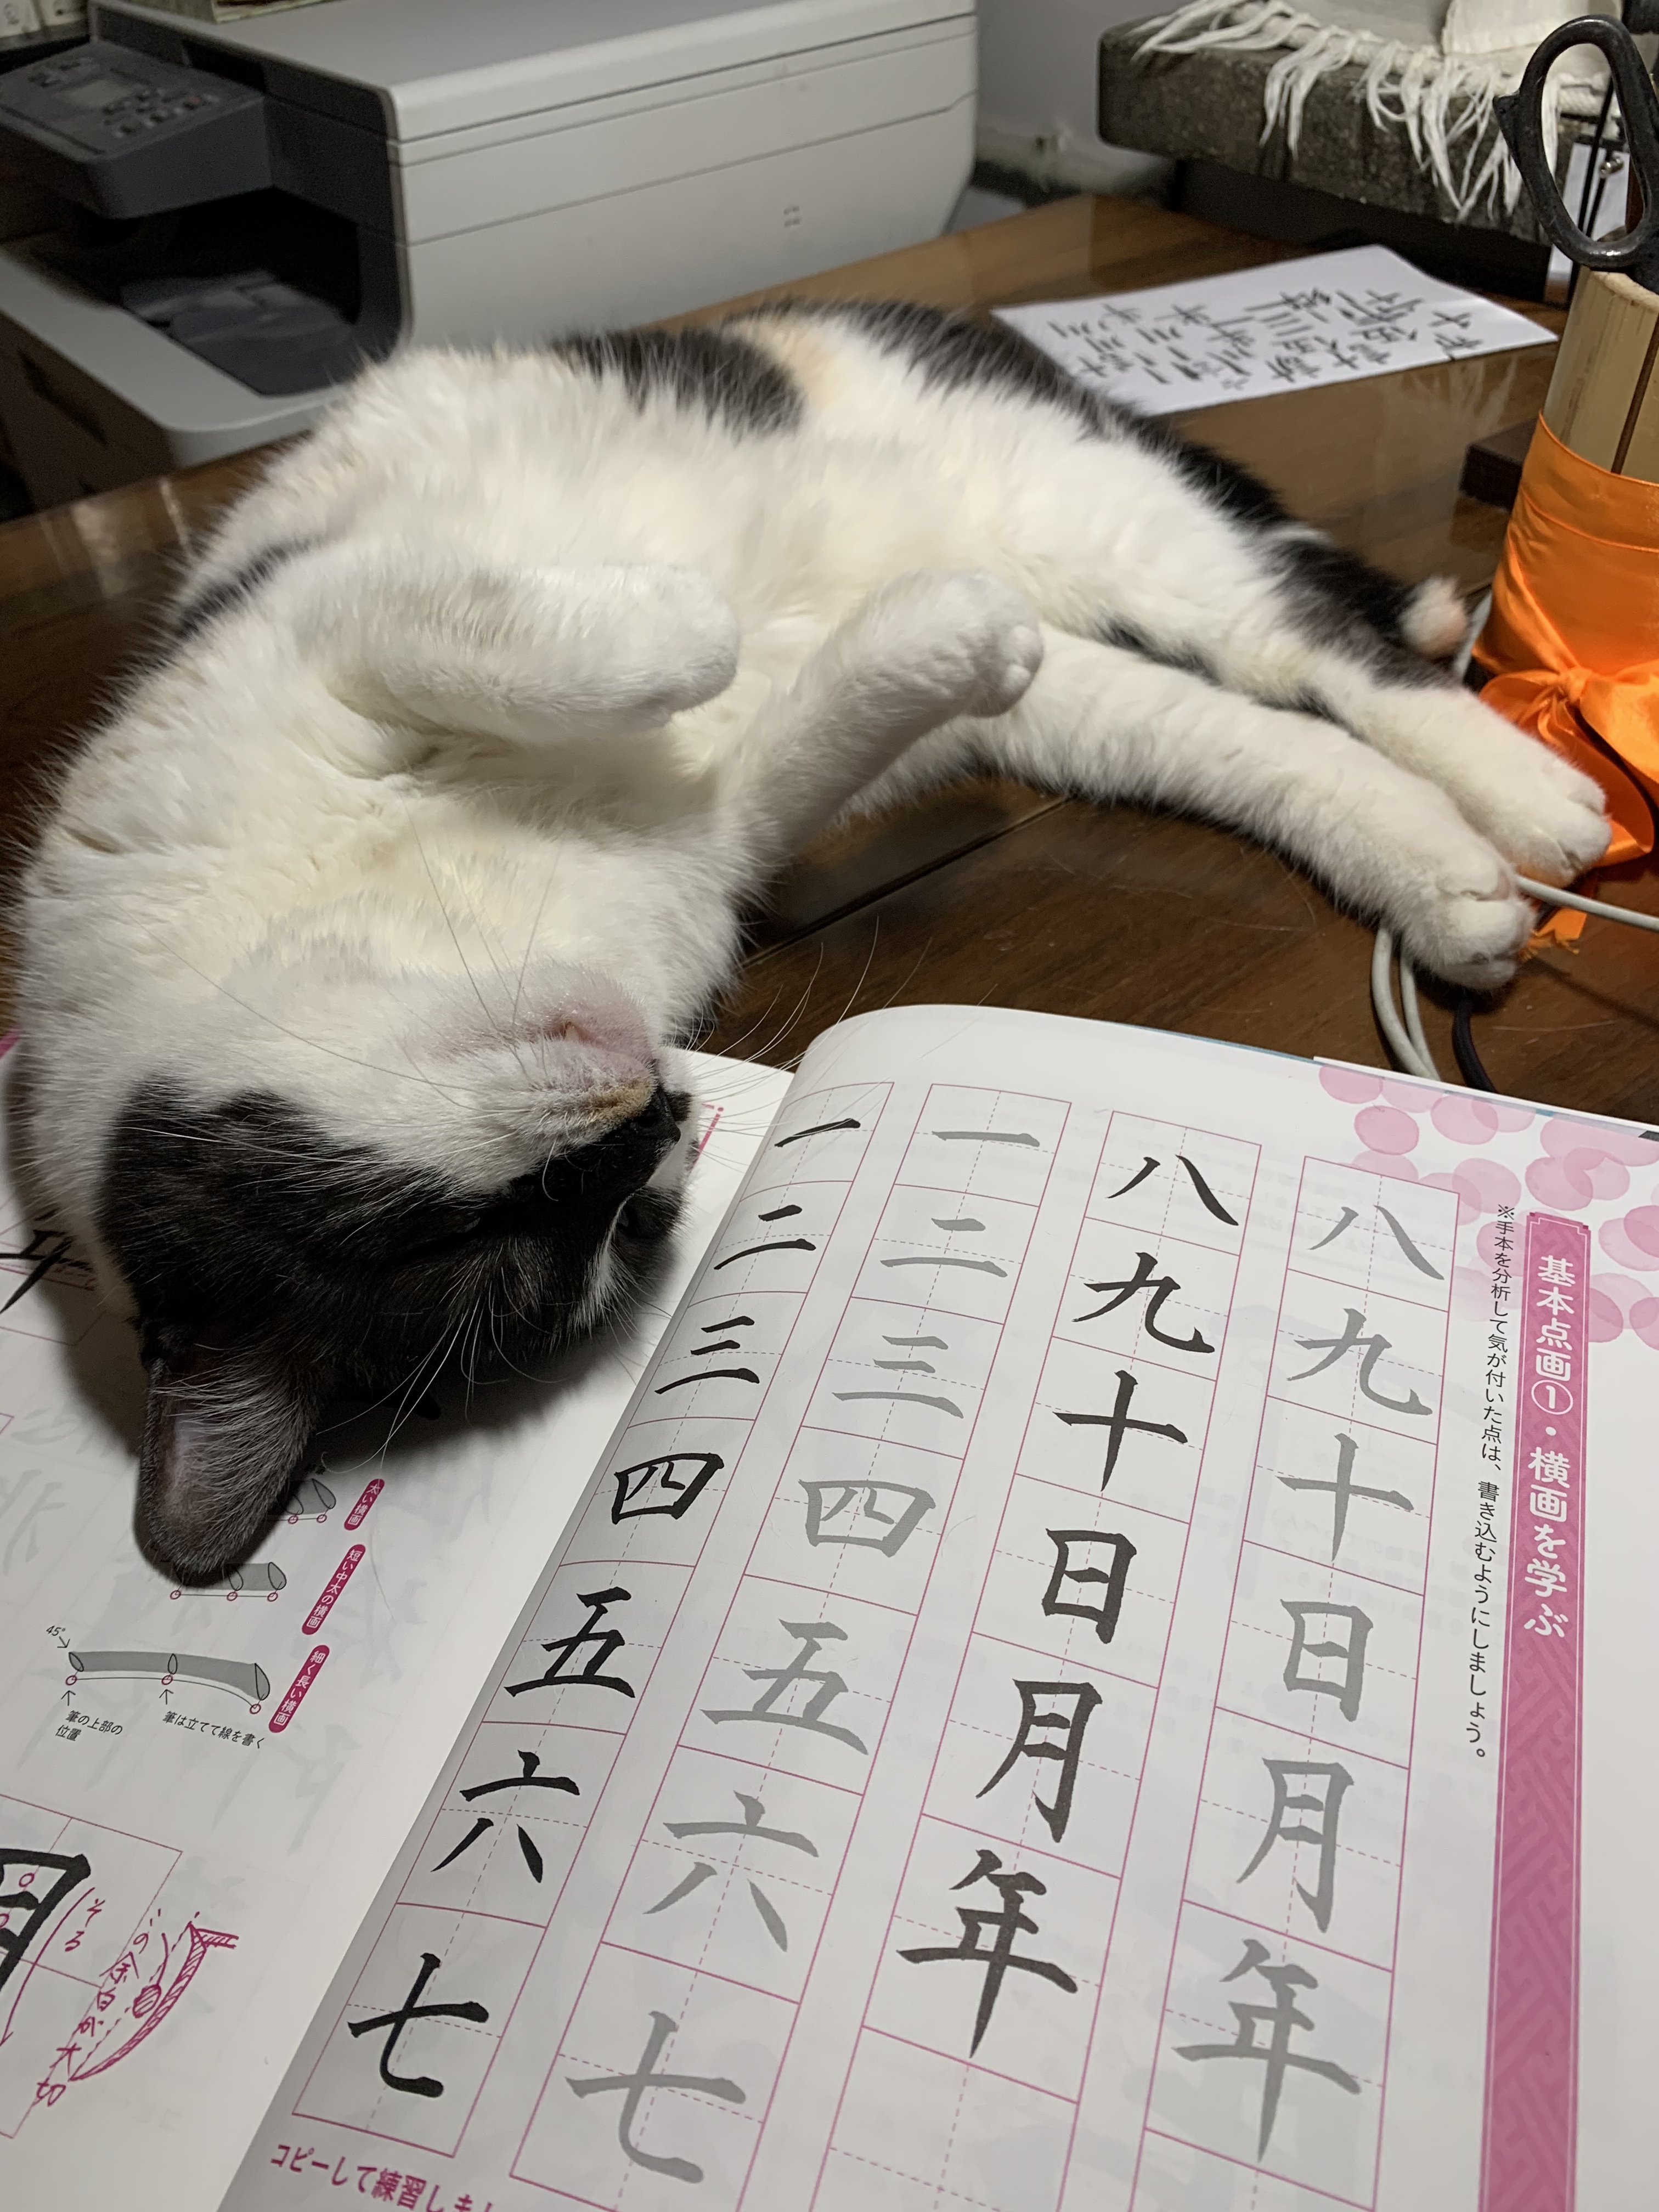 基本点画①・横画を学ぶ
※手本を分析して気が付いた点は、書き込むようにしましょう。
八九十日月年
八九十日月年
一二三四五六七
一二三四五六七
コピーして練習しまし
太い横画
短い中太の横画
細く長い横画
45°
筆の上部の
位置
筆は立てて線を書く
そる
この余白が大切